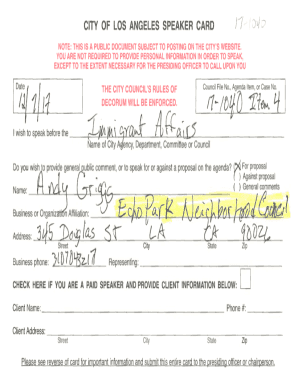 CITY OF LOS ANGELES SPEAKER CARD 17-1040
NOTE: THIS IS A PUBLIC DOCUMENT SUBJECT TO POSTING ON THE CITY'S WEBSITE.
YOU ARE NOT REQUIRED TO PROVIDE PERSONAL INFORMATION IN ORDER TO SPEAK,
EXCEPT TO THE EXTENT NECESSARY FOR THE PRESIDING OFFICER TO CALL UPON YOU
Date
12/7/17
THE CITY COUNCIL'S RULES OF
DECORUM WILL BE ENFORCED.
Council File No., Agenda Item, or Case No.
17-1040 Item 4
I wish to speak before the Immigrant Affairs
Name of City Agency, Department, Committee or Council
Do you wish to provide general public comment, or to speak for or against a proposal on the agenda? (X) For proposal
( ) Against proposal
( ) General comments
Name: Andy Griggs
Business or Organization Affiliation: Echo Park Neighborhood Council
Address: 345 Douglas St LA CA 90026
Street City State Zip
Business phone: 3107043217 Representing:
CHECK HERE IF YOU ARE A PAID SPEAKER AND PROVIDE CLIENT INFORMATION BELOW:
Client Name: Phone #:
Client Address:
Street City State Zip
Please see reverse of card for important information and submit this entire card to the presiding officer or chairperson.